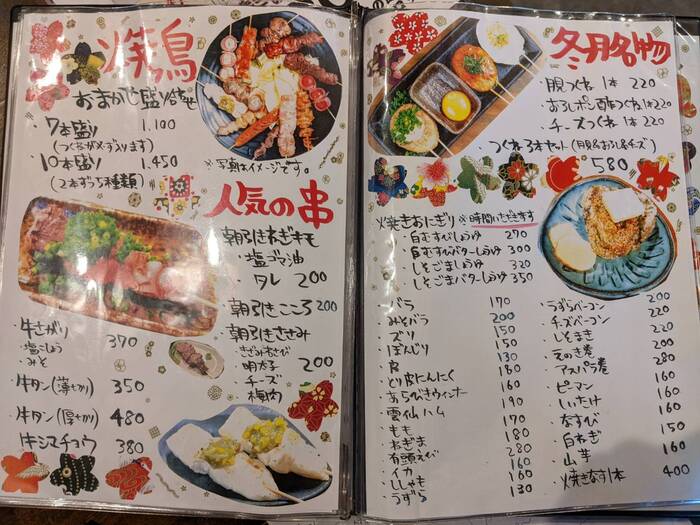 焼鳥
おまかせ盛り合せ
・7本盛り 1.100
(つくねが必ず入ります)
・10本盛り 1.450
(2本ずつ5種類)
※写真はイメージです。
人気の串
朝引きねぎキモ
・塩ゴマ油
・タレ 200
朝引きこころ 200
朝引きささみ
・きざみわさび
・明太子 200
・チーズ
・梅肉
・牛さがり 370
・塩こしょう
・みそ
・牛タン(薄切り) 350
・牛タン(厚切り) 480
・牛シマチョウ 380
冬月名物
・月見つくね 1本 220
・おろしポン酢つくね 1本 220
・チーズつくね 1本 220
・つくね3本セット(月見&おろし&チーズ)
580
焼きおにぎり ※時間いただきます
・白むすびしょうゆ 270
・白むすびバターしょうゆ 300
・しそごましょうゆ 320
・しそごまバターしょうゆ 350
・バラ 170
・みそバラ 200
・ズリ 150
・ぼんじり 150
・皮 130
・とり皮にんにく 160
・あらびきウィンナー 160
・雲仙ハム 190
・もも 170
・ねぎま 180
・有頭えび 280
・イカ 160
・ししゃも 160
・うずら 130
・うずらベーコン 200
・チーズベーコン 220
・しそまき 220
・えのき巻 200
・アスパラ巻 280
・ピーマン 160
・しいたけ 160
・なすび 160
・白ねぎ 150
・山芋 160
・焼きなす1本 400